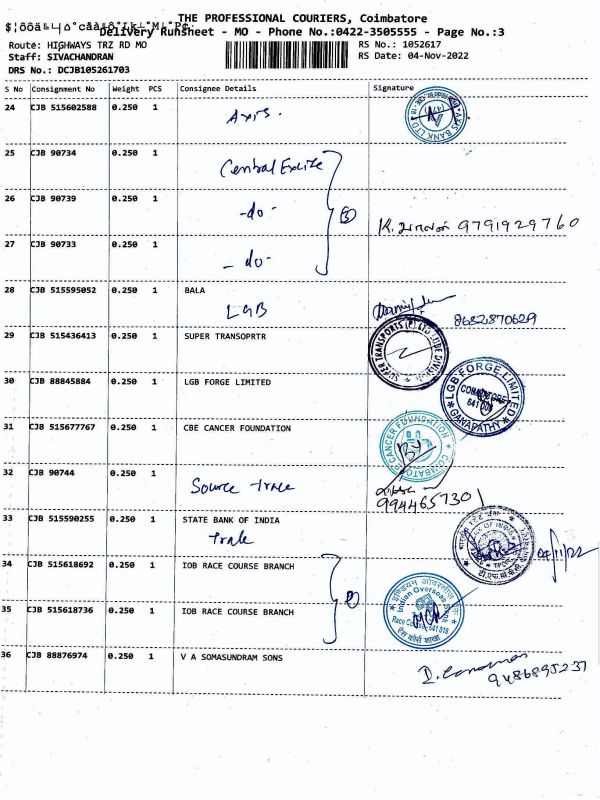 THE PROFESSIONAL COURIERS, Coimbatore
Delivery Runsheet - MO - Phone No.:0422-3505555 - Page No.:3
Route: HIGHWAYS TRZ RD MO RS No.: 1052617
Staff: SIVACHANDRAN RS Date: 04-Nov-2022
DRS No.: DCJB105261703
S No Consignment No Weight PCS Consignee Details Signature
24 CJB 515602588 0.250 1 Axis.
AXIS BANK LTD
25 CJB 90734 0.250 1 Central Excise
26 CJB 90739 0.250 1 -do-
3
K. 9791929760
27 CJB 90733 0.250 1 -do-
28 CJB 515595052 0.250 1 BALA
LGB
29 CJB 515436413 0.250 1 SUPER TRANSOPRTR
SUPER TRANSPORTS (P) LTD
30 CJB 88845884 0.250 1 LGB FORGE LIMITED
LGB FORGE LIMITED
COIMBATORE
641 006
GANAPATHY
31 CJB 515677767 0.250 1 CBE CANCER FOUNDATION
COIMBATORE CANCER FOUNDATION
32 CJB 90744 0.250 1 Source Trace
9944657301
33 CJB 515590255 0.250 1 STATE BANK OF INDIA
Trade
04/11/22
34 CJB 515618692 0.250 1 IOB RACE COURSE BRANCH
35 CJB 515618736 0.250 1 IOB RACE COURSE BRANCH
इण्डियन ओवरसीज बैंक
Indian Overseas Bank
Race Course, 641 018
रेस कोर्स शाखा
36 CJB 88876974 0.250 1 V A SOMASUNDRAM SONS
9486895237